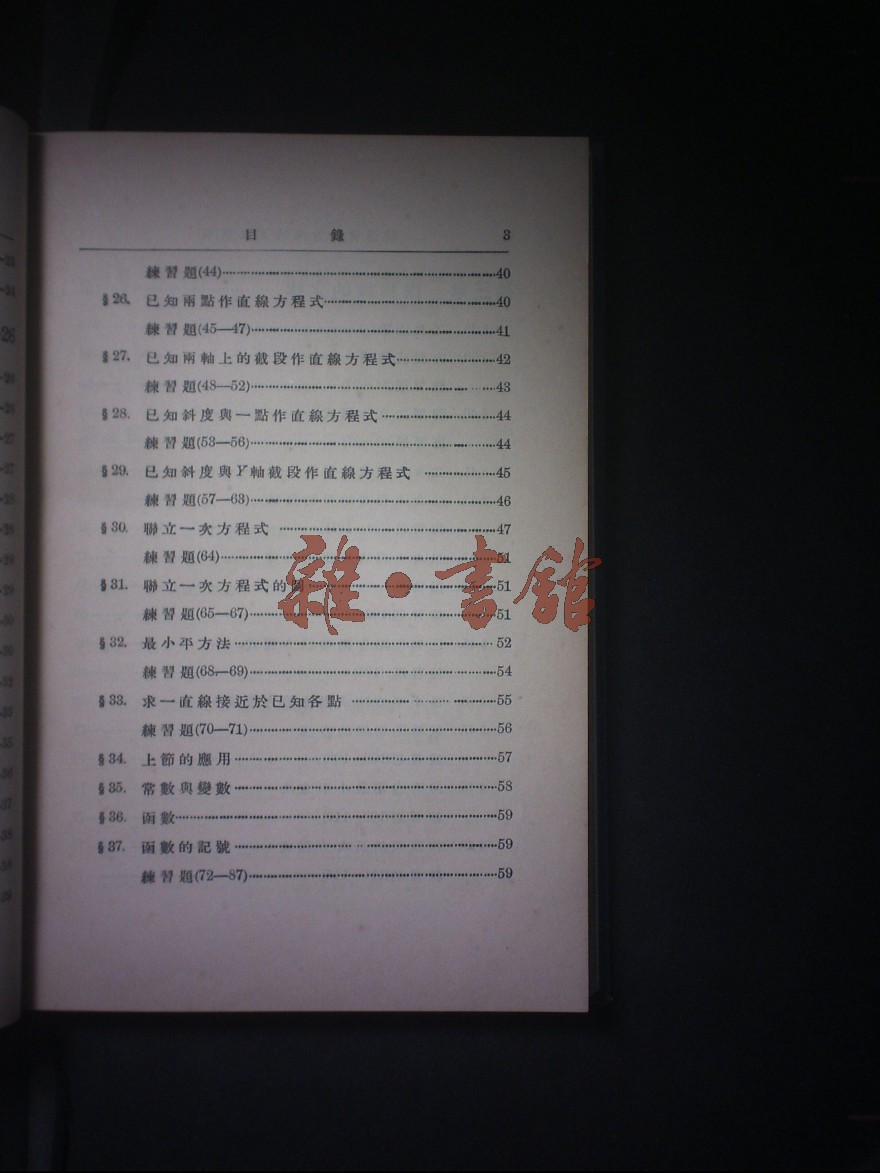 目錄 3
練習題(44)……40
§26. 已知兩點作直線方程式……40
練習題(45—47)……41
§27. 已知兩軸上的截段作直線方程式……42
練習題(48—52)……43
§28. 已知斜度與一點作直線方程式……44
練習題(53—56)……44
§29. 已知斜度與Y軸截段作直線方程式……45
練習題(57—63)……46
§30. 聯立一次方程式……47
練習題(64)……51
§31. 聯立一次方程式的圖……51
練習題(65—67)……51
§32. 最小平方法……52
練習題(68—69)……54
§33. 求一直線接近於已知各點……55
練習題(70—71)……56
§34. 上節的應用……57
§35. 常數與變數……58
§36. 函數……59
§37. 函數的記號……59
練習題(72—87)……59
雜·書館